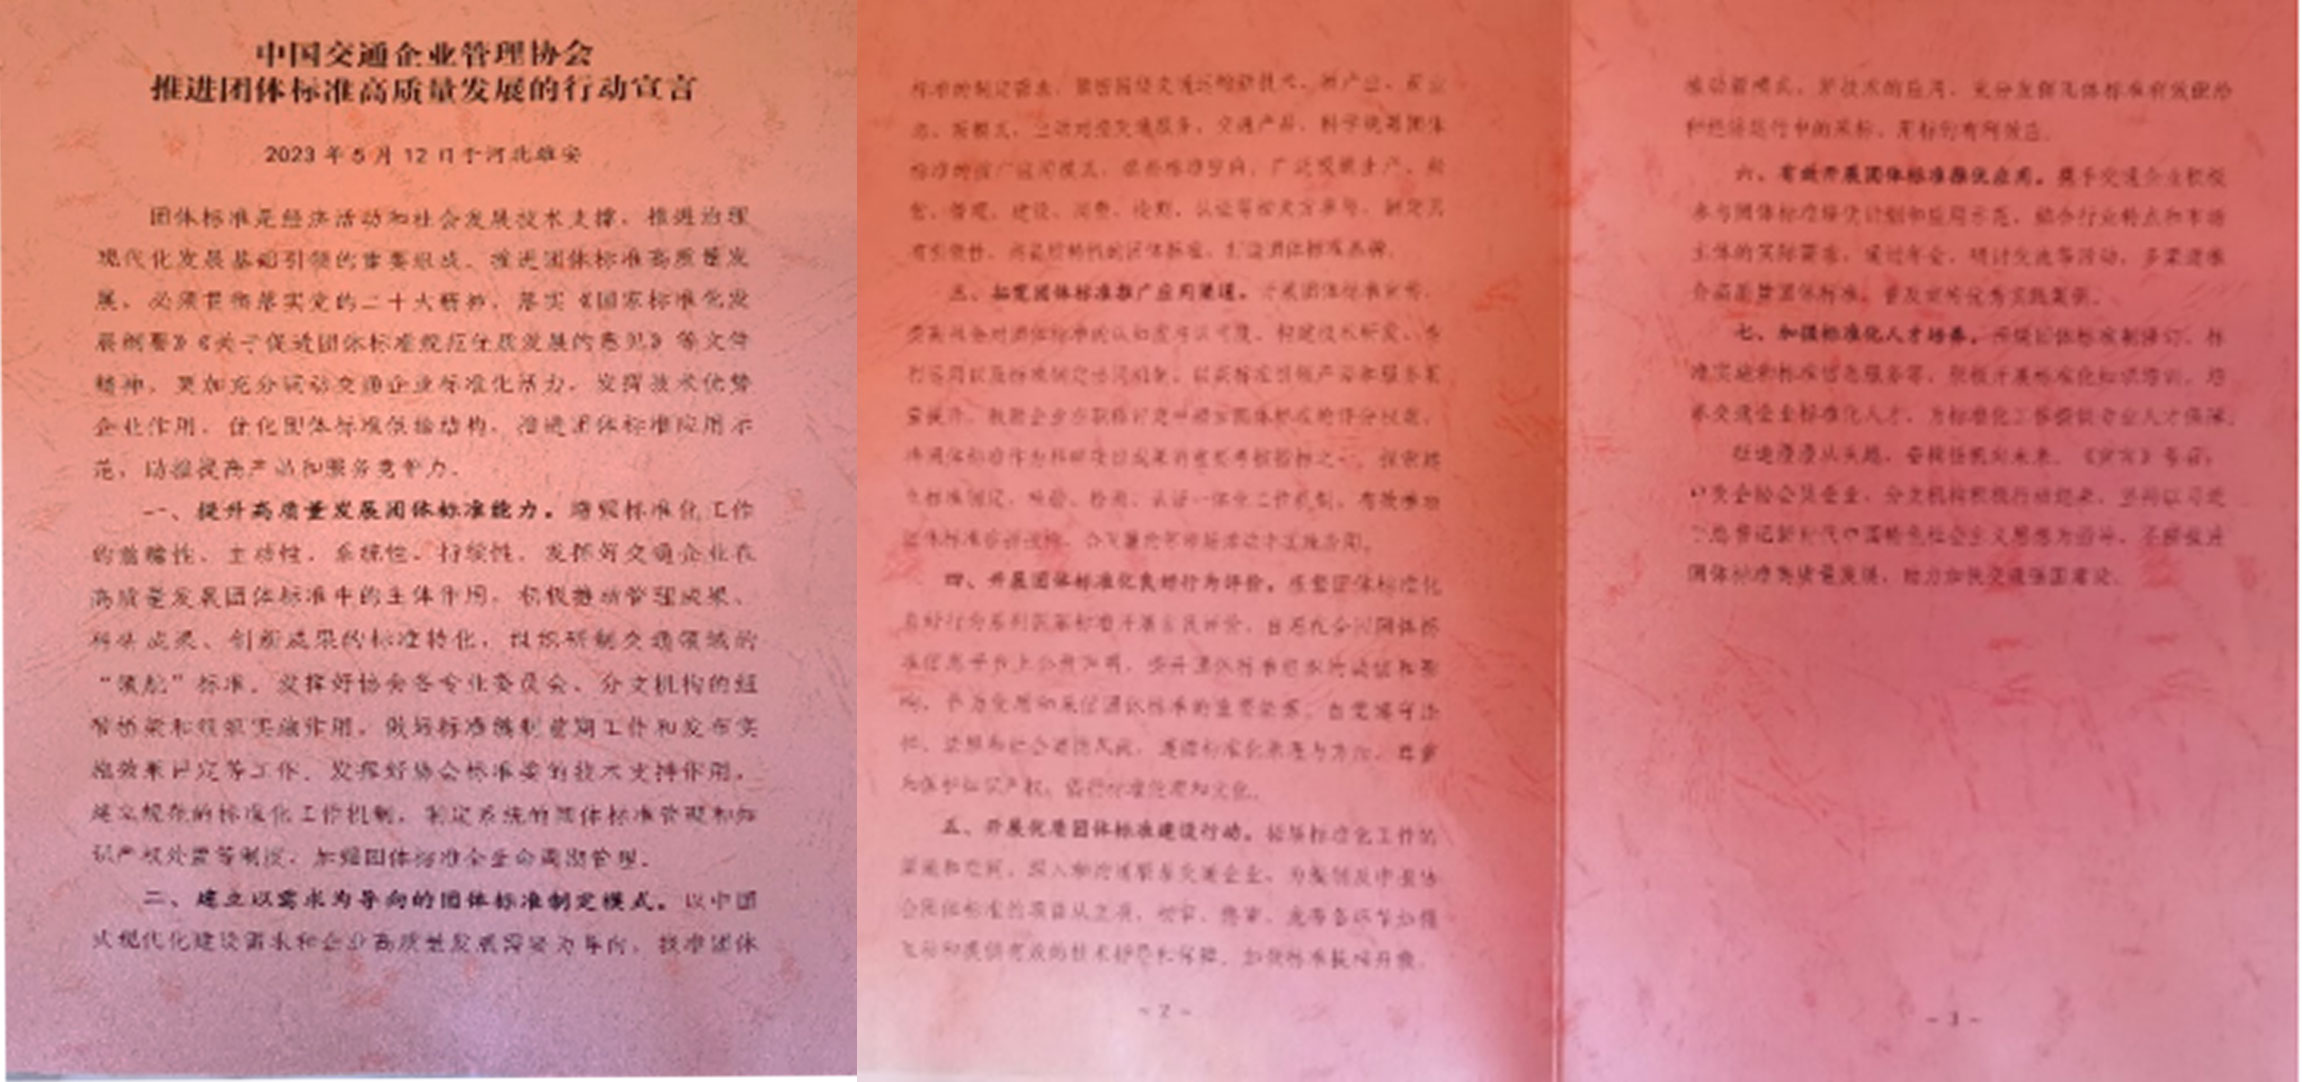 中国交通企业管理协会
推进团体标准高质量发展的行动宣言
2023年5月12日于河北雄安
团体标准是经济活动和社会发展技术支撑,推进治理
现代化发展基础引领的重要组成。推进团体标准高质量发
展,必须贯彻落实党的二十大精神,落实《国家标准化发
展纲要》《关于促进团体标准规范优质发展的意见》等文件
精神,更加充分调动交通企业标准化活力,发挥技术优势
企业作用,优化团体标准供给结构,推进团体标准应用示
范,助推提高产品和服务竞争力。
一、提升高质量发展团体标准能力。增强标准化工作
的前瞻性、主动性、系统性、持续性,发挥好交通企业在
高质量发展团体标准中的主体作用,积极推动管理成果、
科技成果、创新成果的标准转化,组织研制交通领域的
“领航”标准。发挥好协会各专业委员会、分支机构的纽
带桥梁和组织实施作用,做好标准编制前期工作和发布实
施效果评定等工作。发挥好协会标准委的技术支持作用,
建立规范的标准化工作机制,制定系统的团体标准管理和知
识产权处置等制度,加强团体标准全生命周期管理。
二、建立以需求为导向的团体标准制定模式。以中国
式现代化建设需求和企业高质量发展需要为导向,找准团体
标准的制定需求,紧密围绕交通运输新技术、新产业、新业
态、新模式,主动对接交通服务、交通产品、科学统筹团体
标准的推广应用模式,
营、管理、建设、消费、检测、认证等相关方参与,制定具
有引领性、的团体标准,打造团体标准品牌。
三、拓宽团体标准推广应用渠道。开展团体标准宣传,
提高社会对团体标准的认知度与认可度。构建技术研发、专
利布局以及标准制定协同机制,以高标准引领产品和服务质
量提升。鼓励企业在职称评定中增加团体标准的评分权重,
将团体标准作为科研项目成果的重要考核指标之一。探索建
立标准制定、试验、检测、认证一体化工作机制,有效推动
团体标准在
四、开展团体标准化良好行为评价。依据团体标准化
良好行为系列国家标准开展自我评价,自愿在全国团体标
准信息平台上公开声明,提升团体标准组织的诚信和影
响,作为使用和采信团体标准的重要依据。自觉遵守法
律、法规和社会道德风尚,遵循标准化原理与方法,尊重
和保护知识产权,践行标准伦理和文化。
五、开展优质团体标准建设行动。拓展标准化工作的
深度和广度,深入和持续服务交通企业,为编制及申报协
会团体标准的项目从立项、初审、终审、发布各环节加强
互动和提供有效的技术指导和保障。加快标准提档升级,
- 2 -
推动新模式、新技术的应用,充分发挥团体标准有效供给
和经济运行中的采标、用标的有利效应。
六、有效开展团体标准推优应用。携手交通企业积极
参与团体标准培优计划和应用示范,结合行业特点和市场
主体的实际需求,通过年会、研讨交流等活动,多渠道推
介高质量团体标准,普及宣传优秀实践案例。
七、加强标准化人才培养。围绕团体标准制修订、标
准实施和标准信息服务等,积极开展标准化知识培训,培
养交通企业标准化人才,为标准化工作提供专业人才保障。
征途漫漫从头越,奋楫扬帆向未来。《宣言》号召,
中交企协会员企业、分支机构积极行动起来,坚持以习近
平总书记新时代中国特色社会主义思想为指导,不断推进
团体标准高质量发展,助力加快交通强国建设。
- 3 -